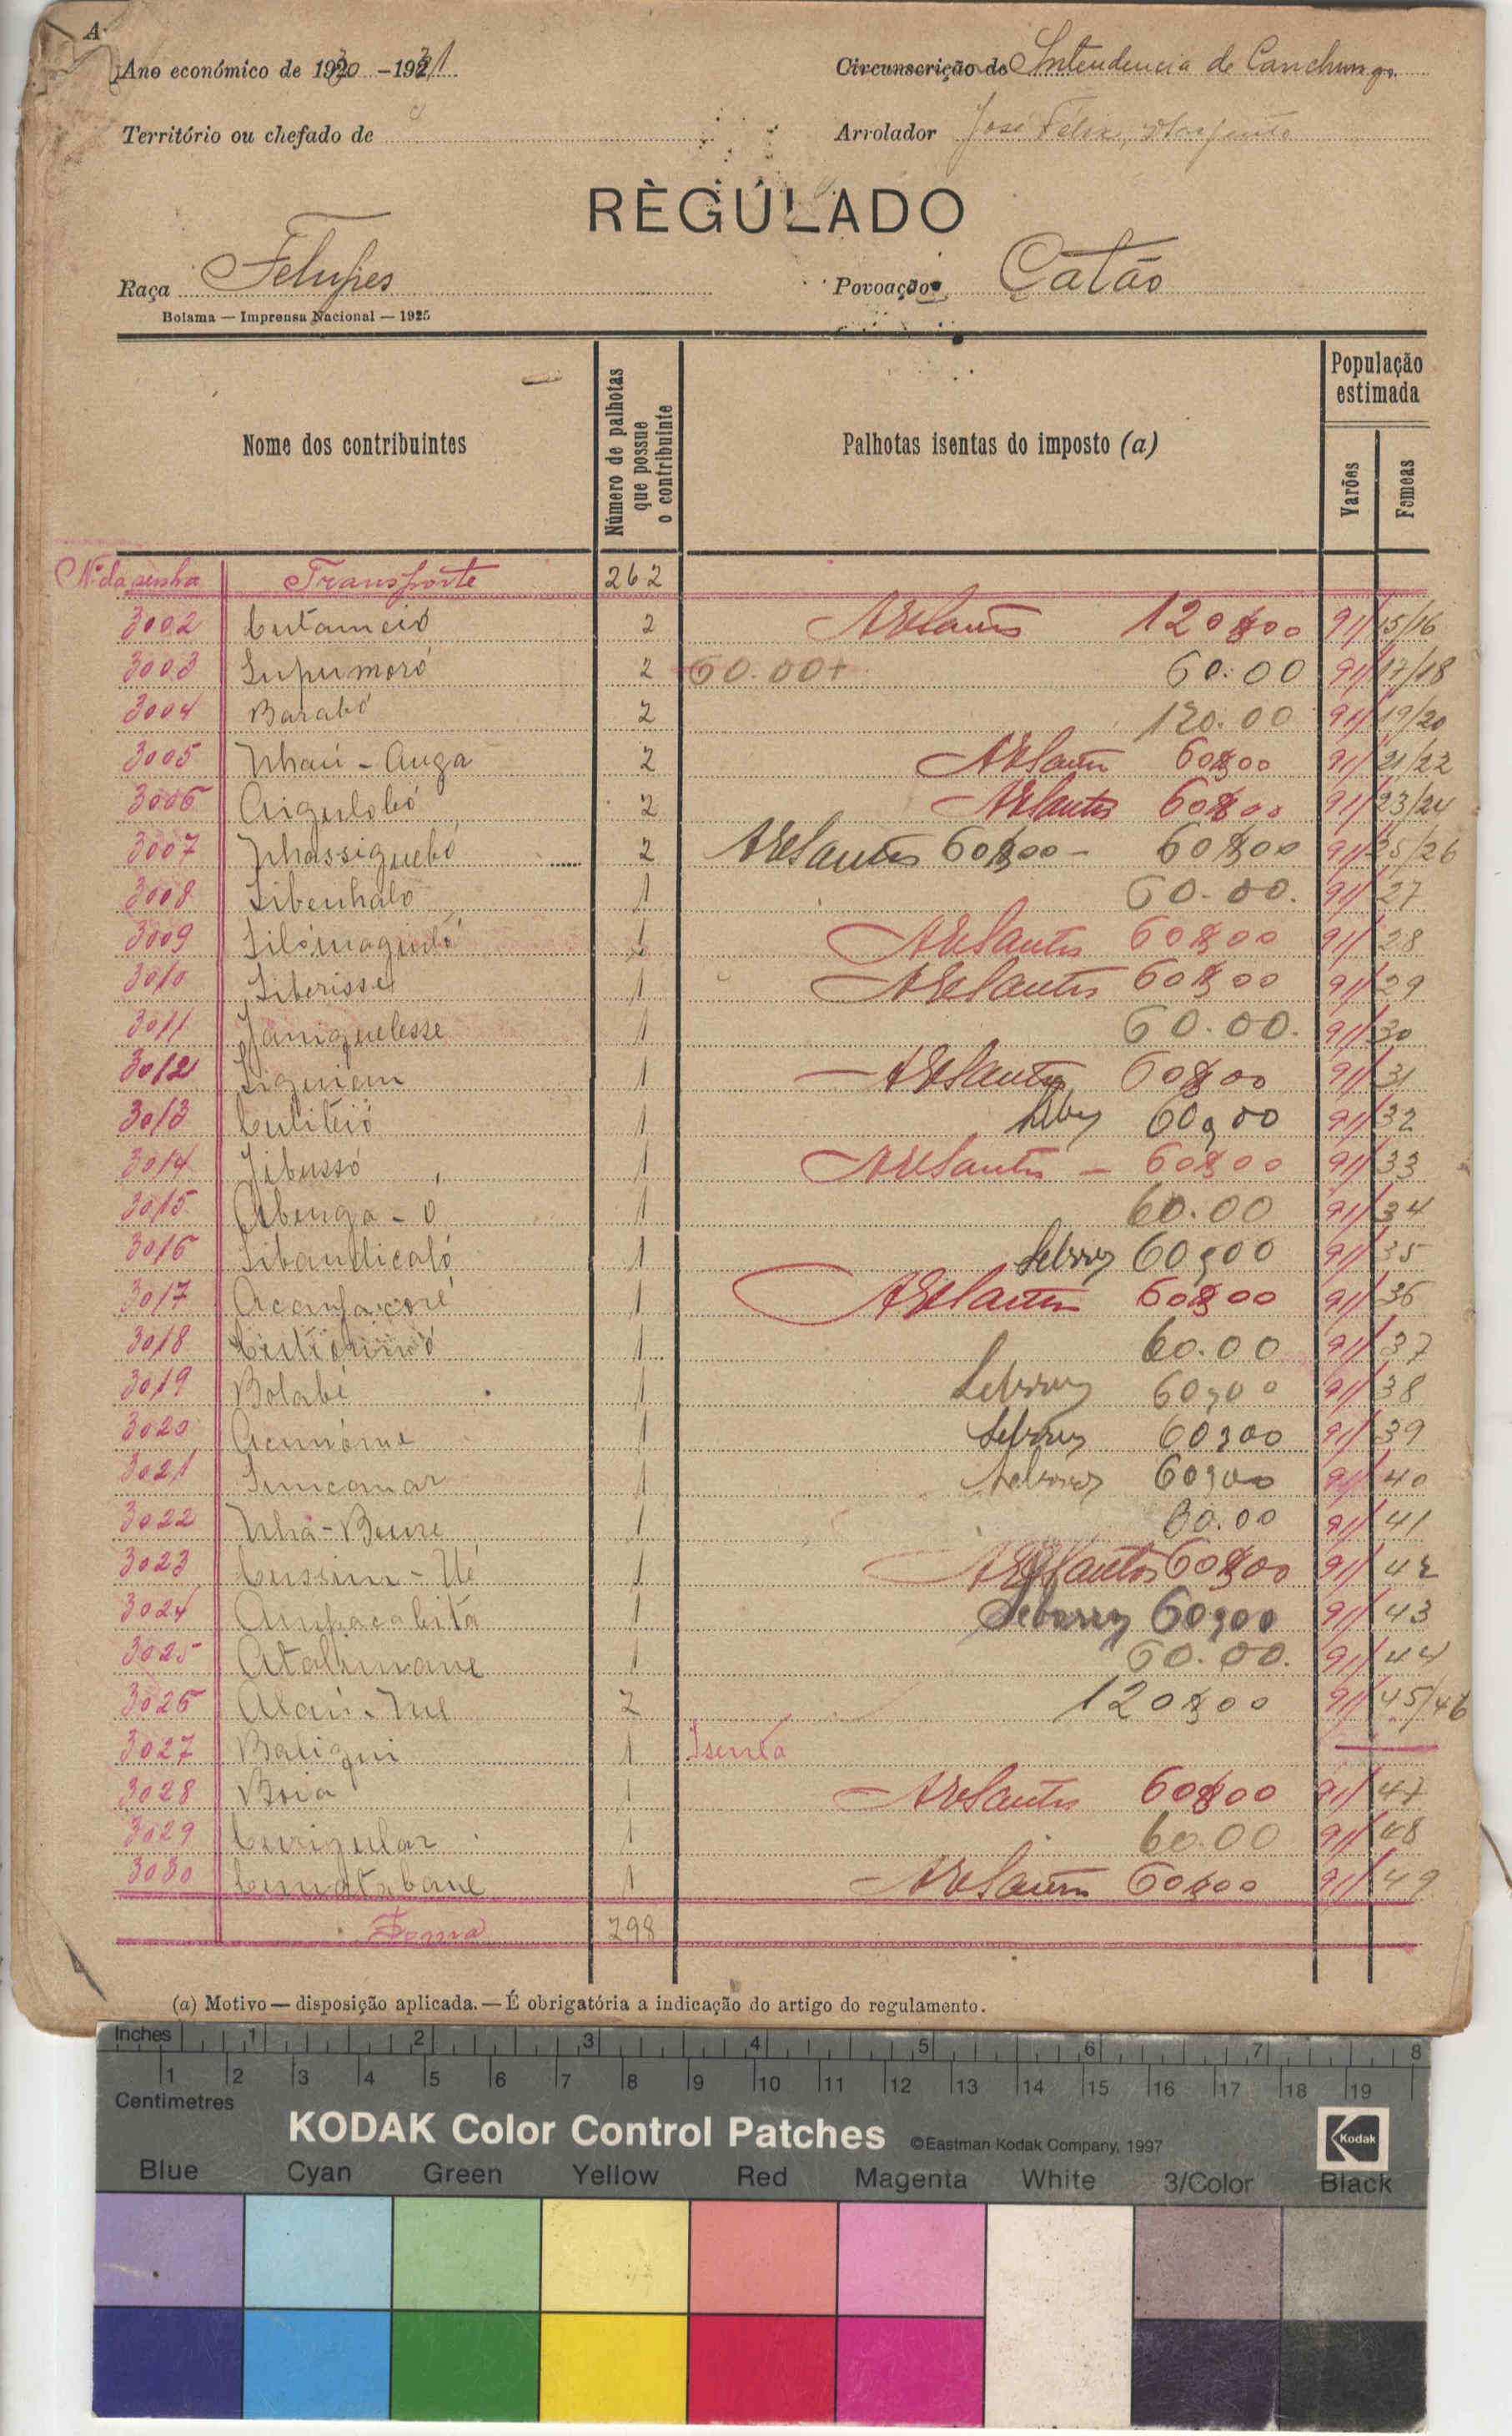 A
Ano económico de 1930 -1931
Circunscrição de Intendencia de Canchungo
Território ou chefado de
Arrolador José Felix, Sargento
RÈGÚLADO
Raça Felupes
Povoação Catão
Bolama — Imprensa Nacional — 1925
Nome dos contribuintes
Número de palhotas que possue o contribuinte
Palhotas isentas do imposto (a)
População estimada
Varões
Femeas
Nº da senha Transporte 262
3002 2 120$00 91/15/16
3003 Supumoró 2 60.00+ 60.00 91/17/18
3004 Barabó 2 120.00 91/19/20
3005 Nhaú - Auga 2 ARSantos 60$00 91/21/22
3006 Aigulobó 2 ARSantos 60$00 91/23/24
3007 Nhassiguebó 2 ARSantos 60$00 - 60$00 91/25/26
3008 Sibenhalo 1 60.00. 91/27
3009 1 ARSantos 60$00 91/28
3010 Siberisse 1 ARSantos 60$00 91/29
3011 Janiguelesse 1 60.00. 91/30
3012 1 ARSantos 60$00 91/31
3013 1 60$00 91/32
3014 Jibussó 1 ARSantos - 60$00 91/33
3015 Abenga - ó 1 60.00 91/34
3016 Sibandicaló 1 60$00 91/35
3017 1 ARSantos 60$00 91/36
3018 1 60.00 91/37
3019 Bolabé 1 60$00 91/38
3020 1 60$00 91/39
3021 1 60$00 91/40
3022 1 60.00 91/41
3023 Cussim - Ué 1 ARSantos 60$00 91/42
3024 Ampacabita 1 60$00 91/43
3025 1 60.00. 91/44
3026 2 120$00 91/45/46
3027 Baligui 1 Isenta
3028 Boia 1 ARSantos 60$00 91/47
3029 Curigular 1 60.00 91/48
3030 1 ARSantos 60$00 91/49
Soma 298
(a) Motivo — disposição aplicada. — É obrigatória a indicação do artigo do regulamento.
Inches 1 2 3 4 5 6 7 8
1 2 3 4 5 6 7 8 9 10 11 12 13 14 15 16 17 18 19
Centimetres
KODAK Color Control Patches ©Eastman Kodak Company, 1997 Kodak
Blue Cyan Green Yellow Red Magenta White 3/Color Black